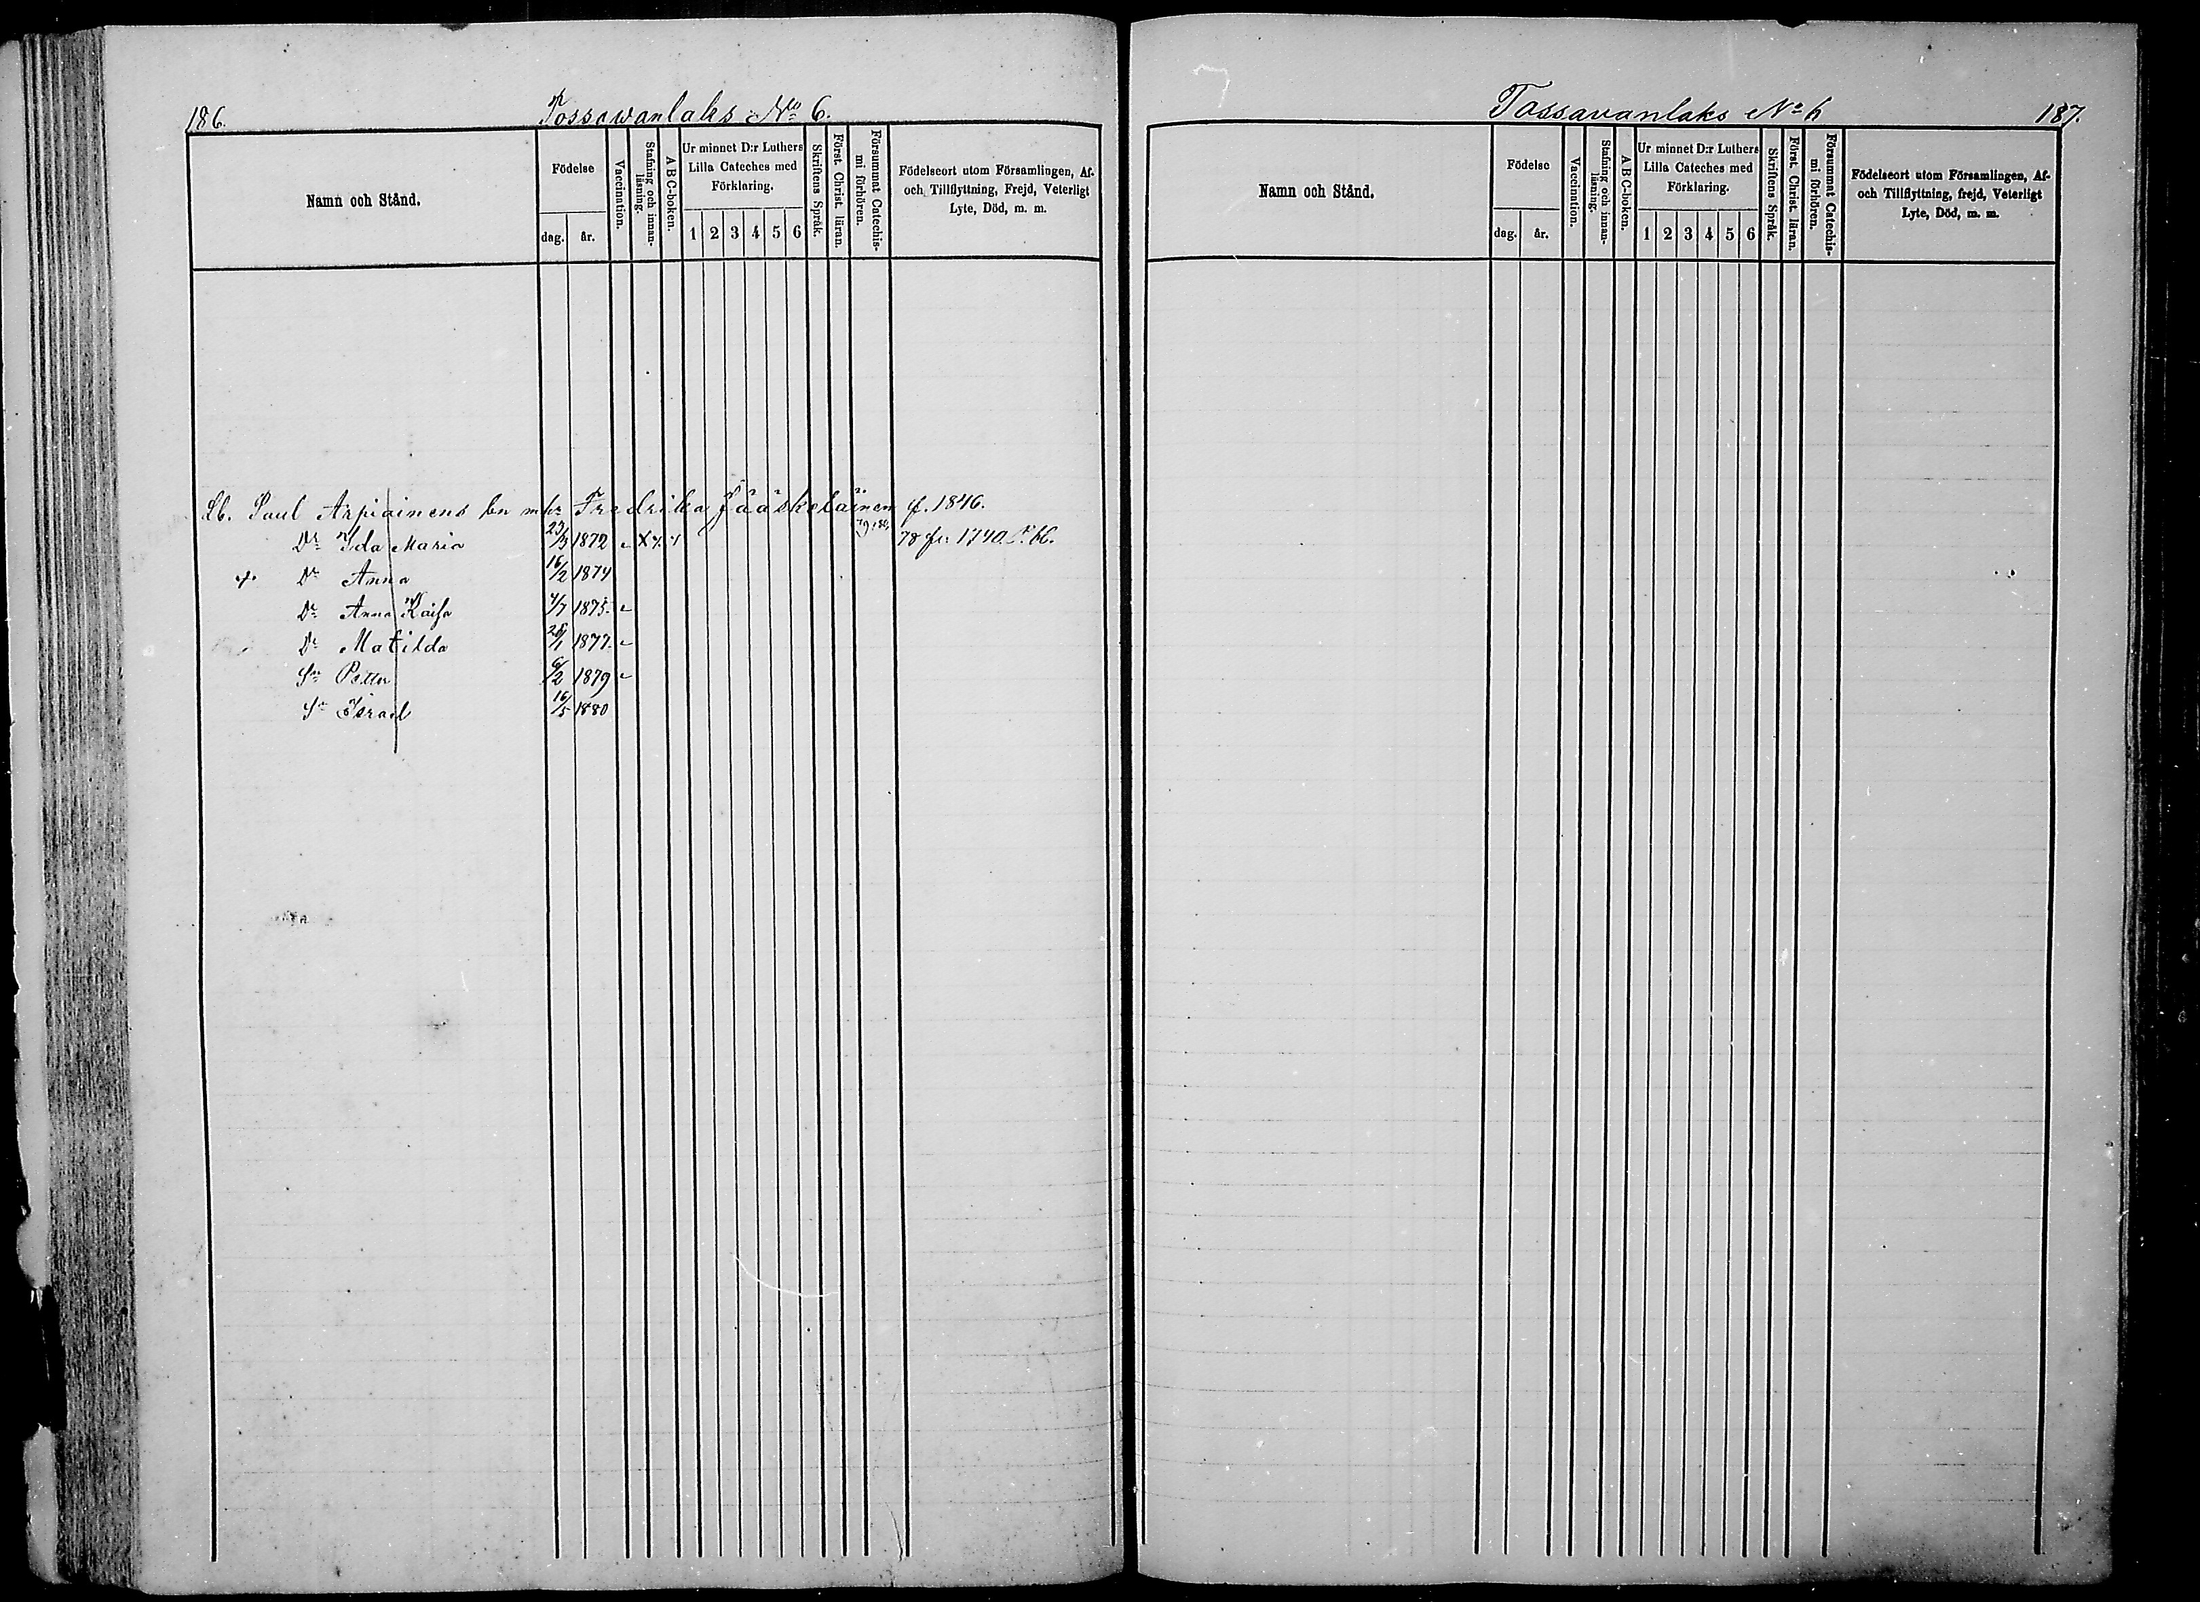 186. Tossawanlaks No 6.
Namn och Stånd.
Födelse
dag. år.
Vaccination.
Stafning och innanläsning.
A B C-boken.
Ur minnet D:r Luthers
Lilla Cateches med
Förklaring.
1 2 3 4 5 6
Skriftens Språk.
Först. Christ. läran.
Försummat Catechismi förhören.
Födelseort utom Församlingen, Af-
och Tillflyttning, Frejd, Veterligt
Lyte, Död, m. m.
Lb. Paul Arpiainens bn m hr Fredrika Jääskeläinen f. 1846.
Dr Ida Maria 23/3 1872 78 fr: 1740
Dr Anna 16/2 1874
Dr Anna Kaisa 4/7 1875
Dr Matilda 28/1 1877
Sn Petter 6/2 1879
Sn Israel 16/5 1880
Tossavanlaks No 6 187.
Namn och Stånd.
Födelse
dag. år.
Vaccination.
Stafning och innanläsning.
A B C-boken.
Ur minnet D:r Luthers
Lilla Cateches med
Förklaring.
1 2 3 4 5 6
Skriftens Språk.
Först. Christ. läran.
Försummat Catechismi förhören.
Födelseort utom Församlingen, Af-
och Tillflyttning, frejd, Veterligt
Lyte, Död, m. m.